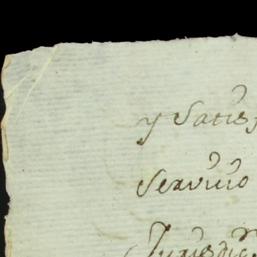 y Satisf
Servicio
Jurisdic